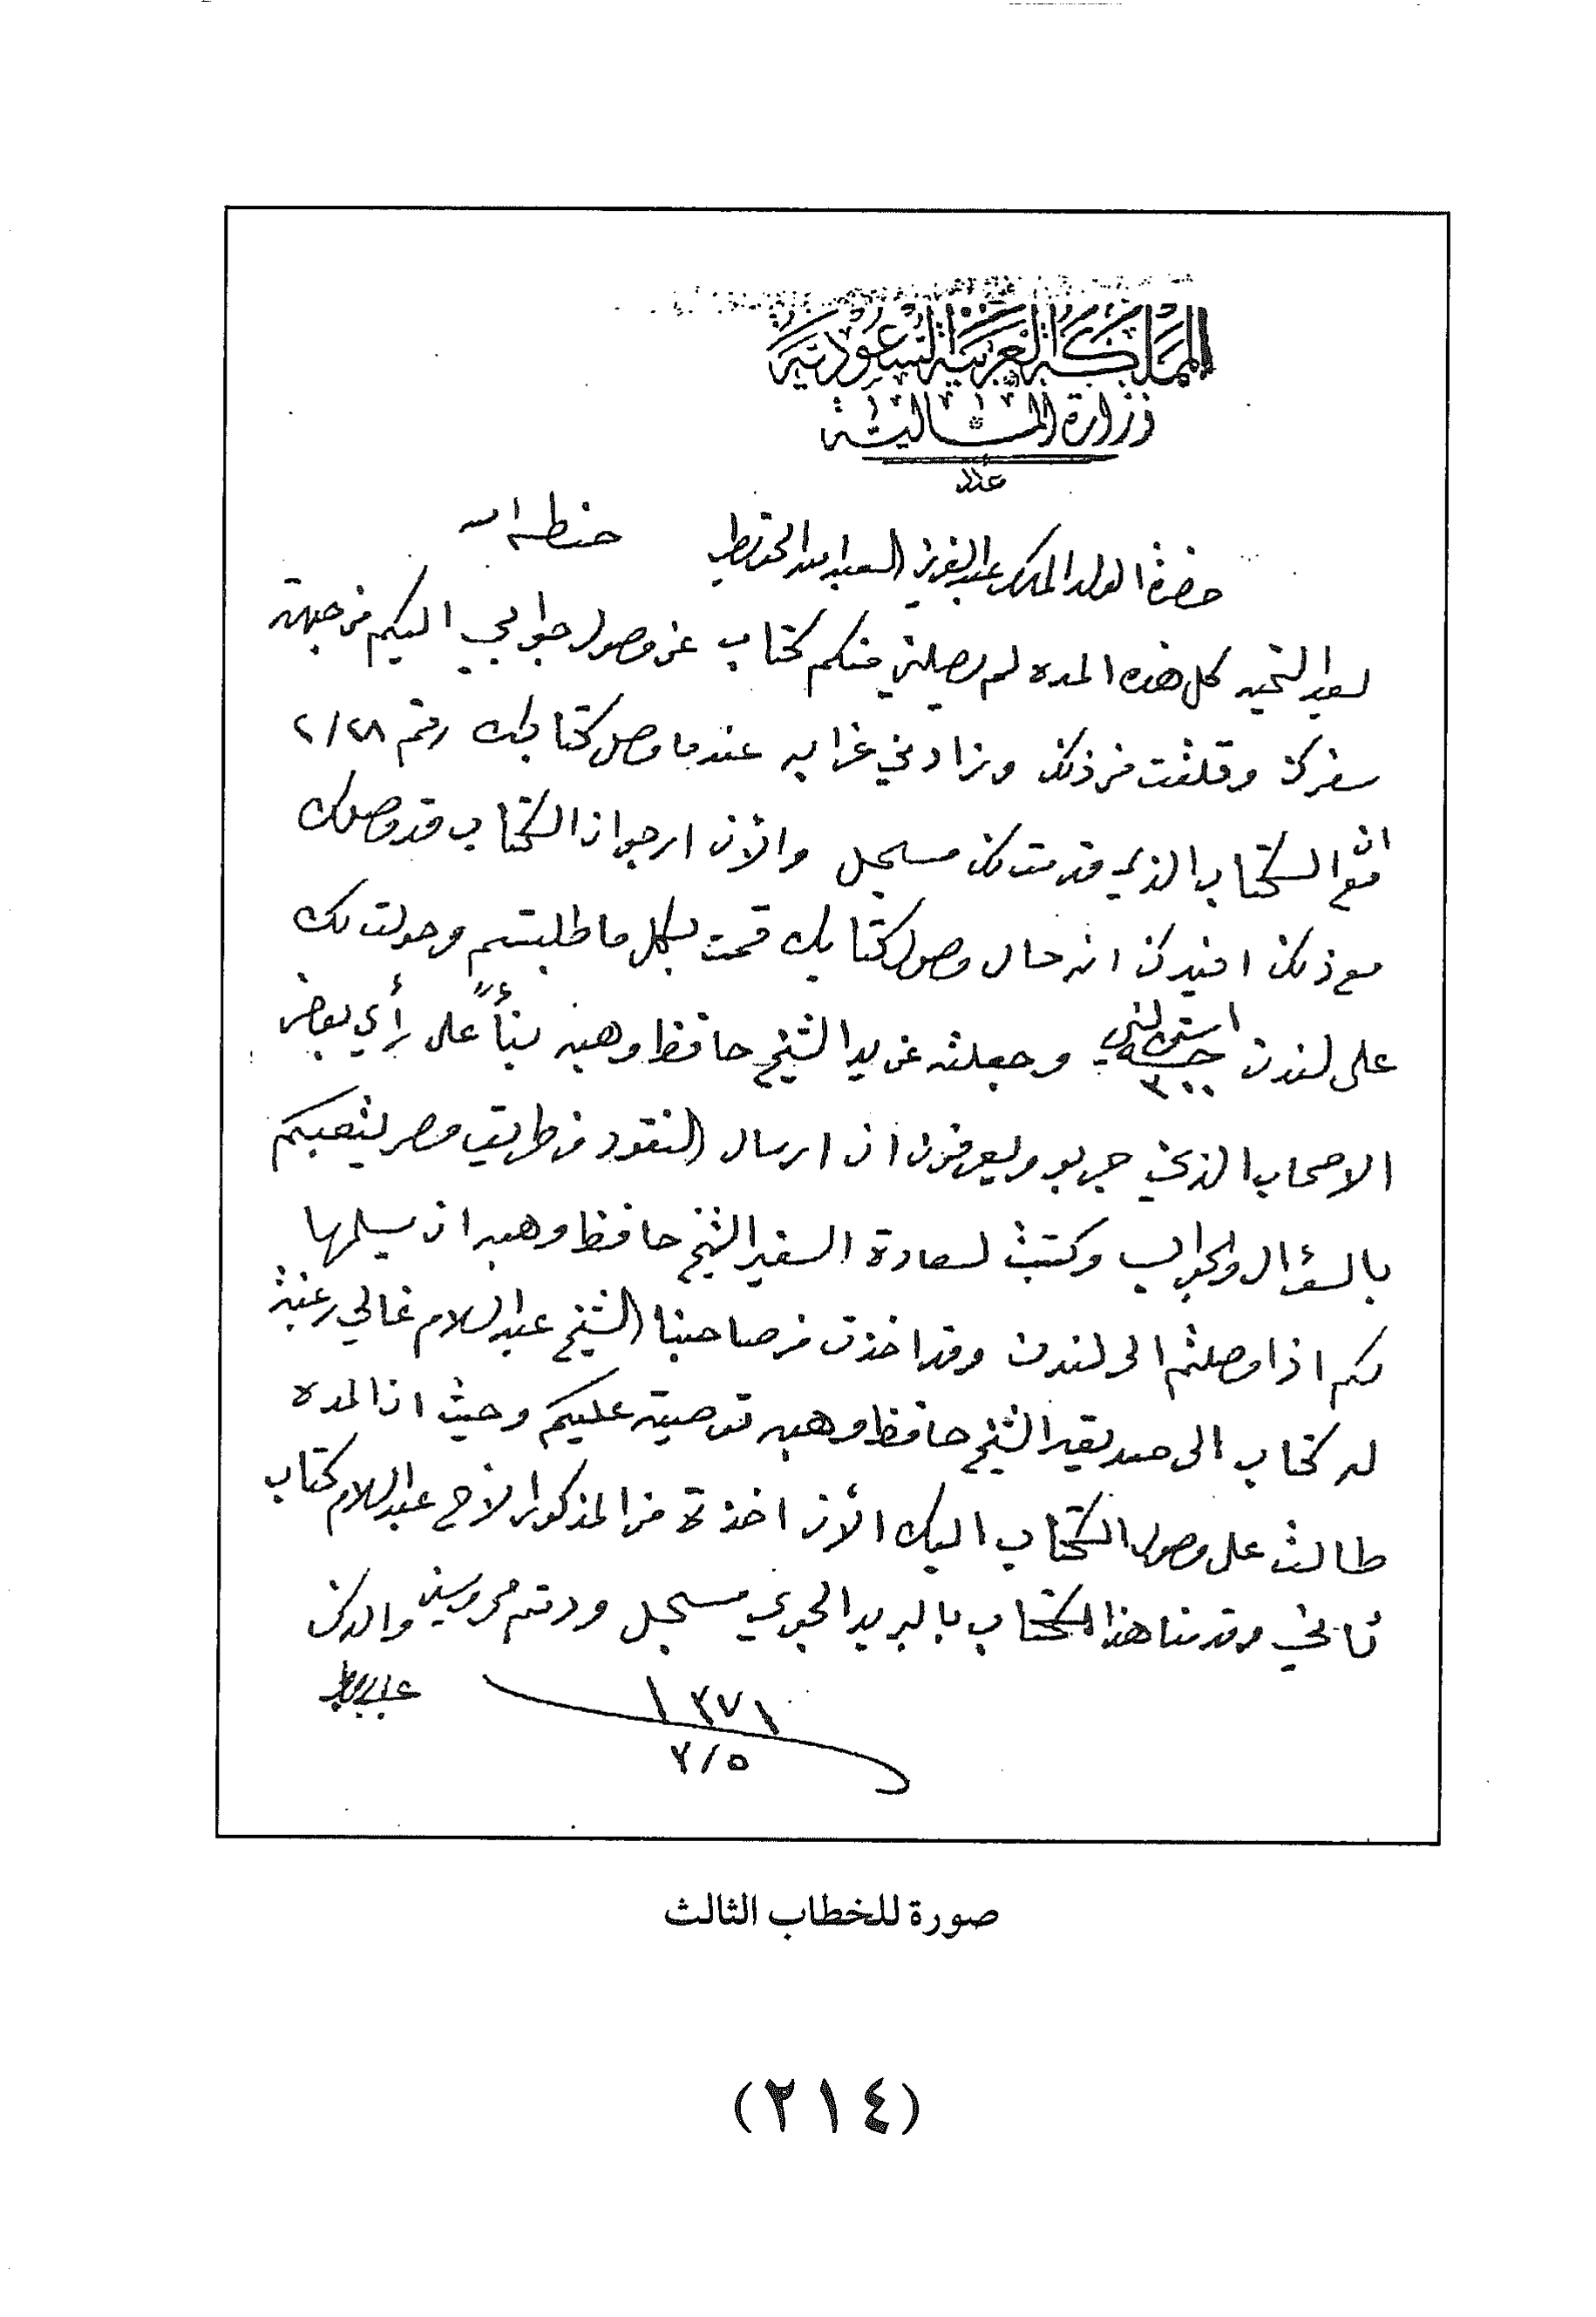 المملكة العربية السعودية
وزارة المالية
عدد
حضرة الولد المكرم عبدالعزيز العبدالله الخويطر حفظه الله
بعد التحيه كل هذه المده لم يصلني منكم كتاب عن وصول جوابي اليكم من جهة
سفرك وقلقت من ذلك وزادني غرابه عندما وصل كتابك رقم ٢/٢٨
ان
مع الكتاب الذي قدمت لك مسجل والآن ارجو ان الكتاب قد وصلك
مع ذلك افيدك انه حال وصول كتابك قمت بكل ما طلبتم وحولت لك
على لندن ٣٠٠ جنيه استرليني وجعلته عن يد الشيخ حافظ وهبه بنأً على رأي بعض
الاصحاب الذي جربو ويعرفون ان ارسال النقود من طريق مصر يتعبكم
بالسؤال والجواب وكتبت لسعادة السفير الشيخ حافظ وهبه ان يسلمها
لكم اذا وصلتم الى لندن وقد اخذت من صاحبنا الشيخ عبدالسلام غالي رغبة
له كتاب الى صديقه الشيخ حافظ وهبه توصية عليكم وحيث ان المده
طالت على وصول الكتاب اليك الآن اخذت من المذكور الأخ عبدالسلام كتاب
ثاني وقدمنا هذا الكتاب بالبريد الجوي مسجل ودمتم محروسين والدك
١٣٧١
٣/٥
صورة للخطاب الثالث
(٢١٤)